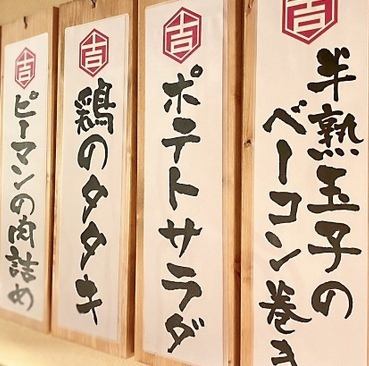 吉
半熟玉子の
ベーコン巻き
吉
ポテトサラダ
吉
鶏のタタキ
吉
ピーマンの肉詰め